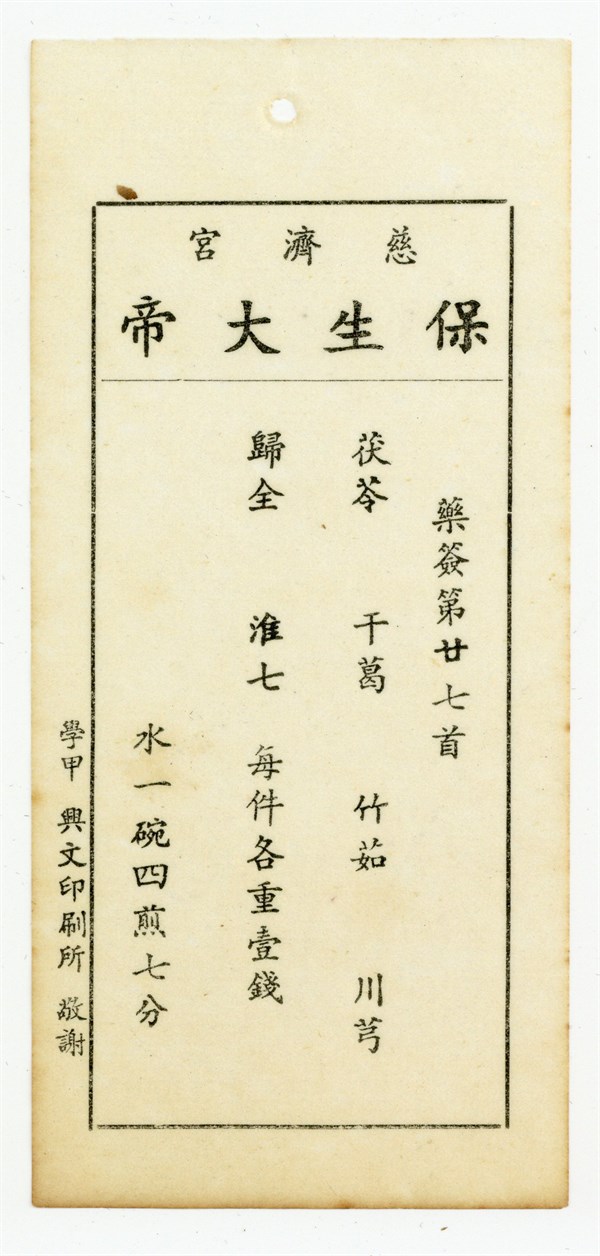 慈濟宮
保生大帝
藥簽第廿七首
茯苓 干葛 竹茹 川芎
歸全 淮七 每件各重壹錢
水一碗四煎七分
學甲 興文印刷所 敬謝